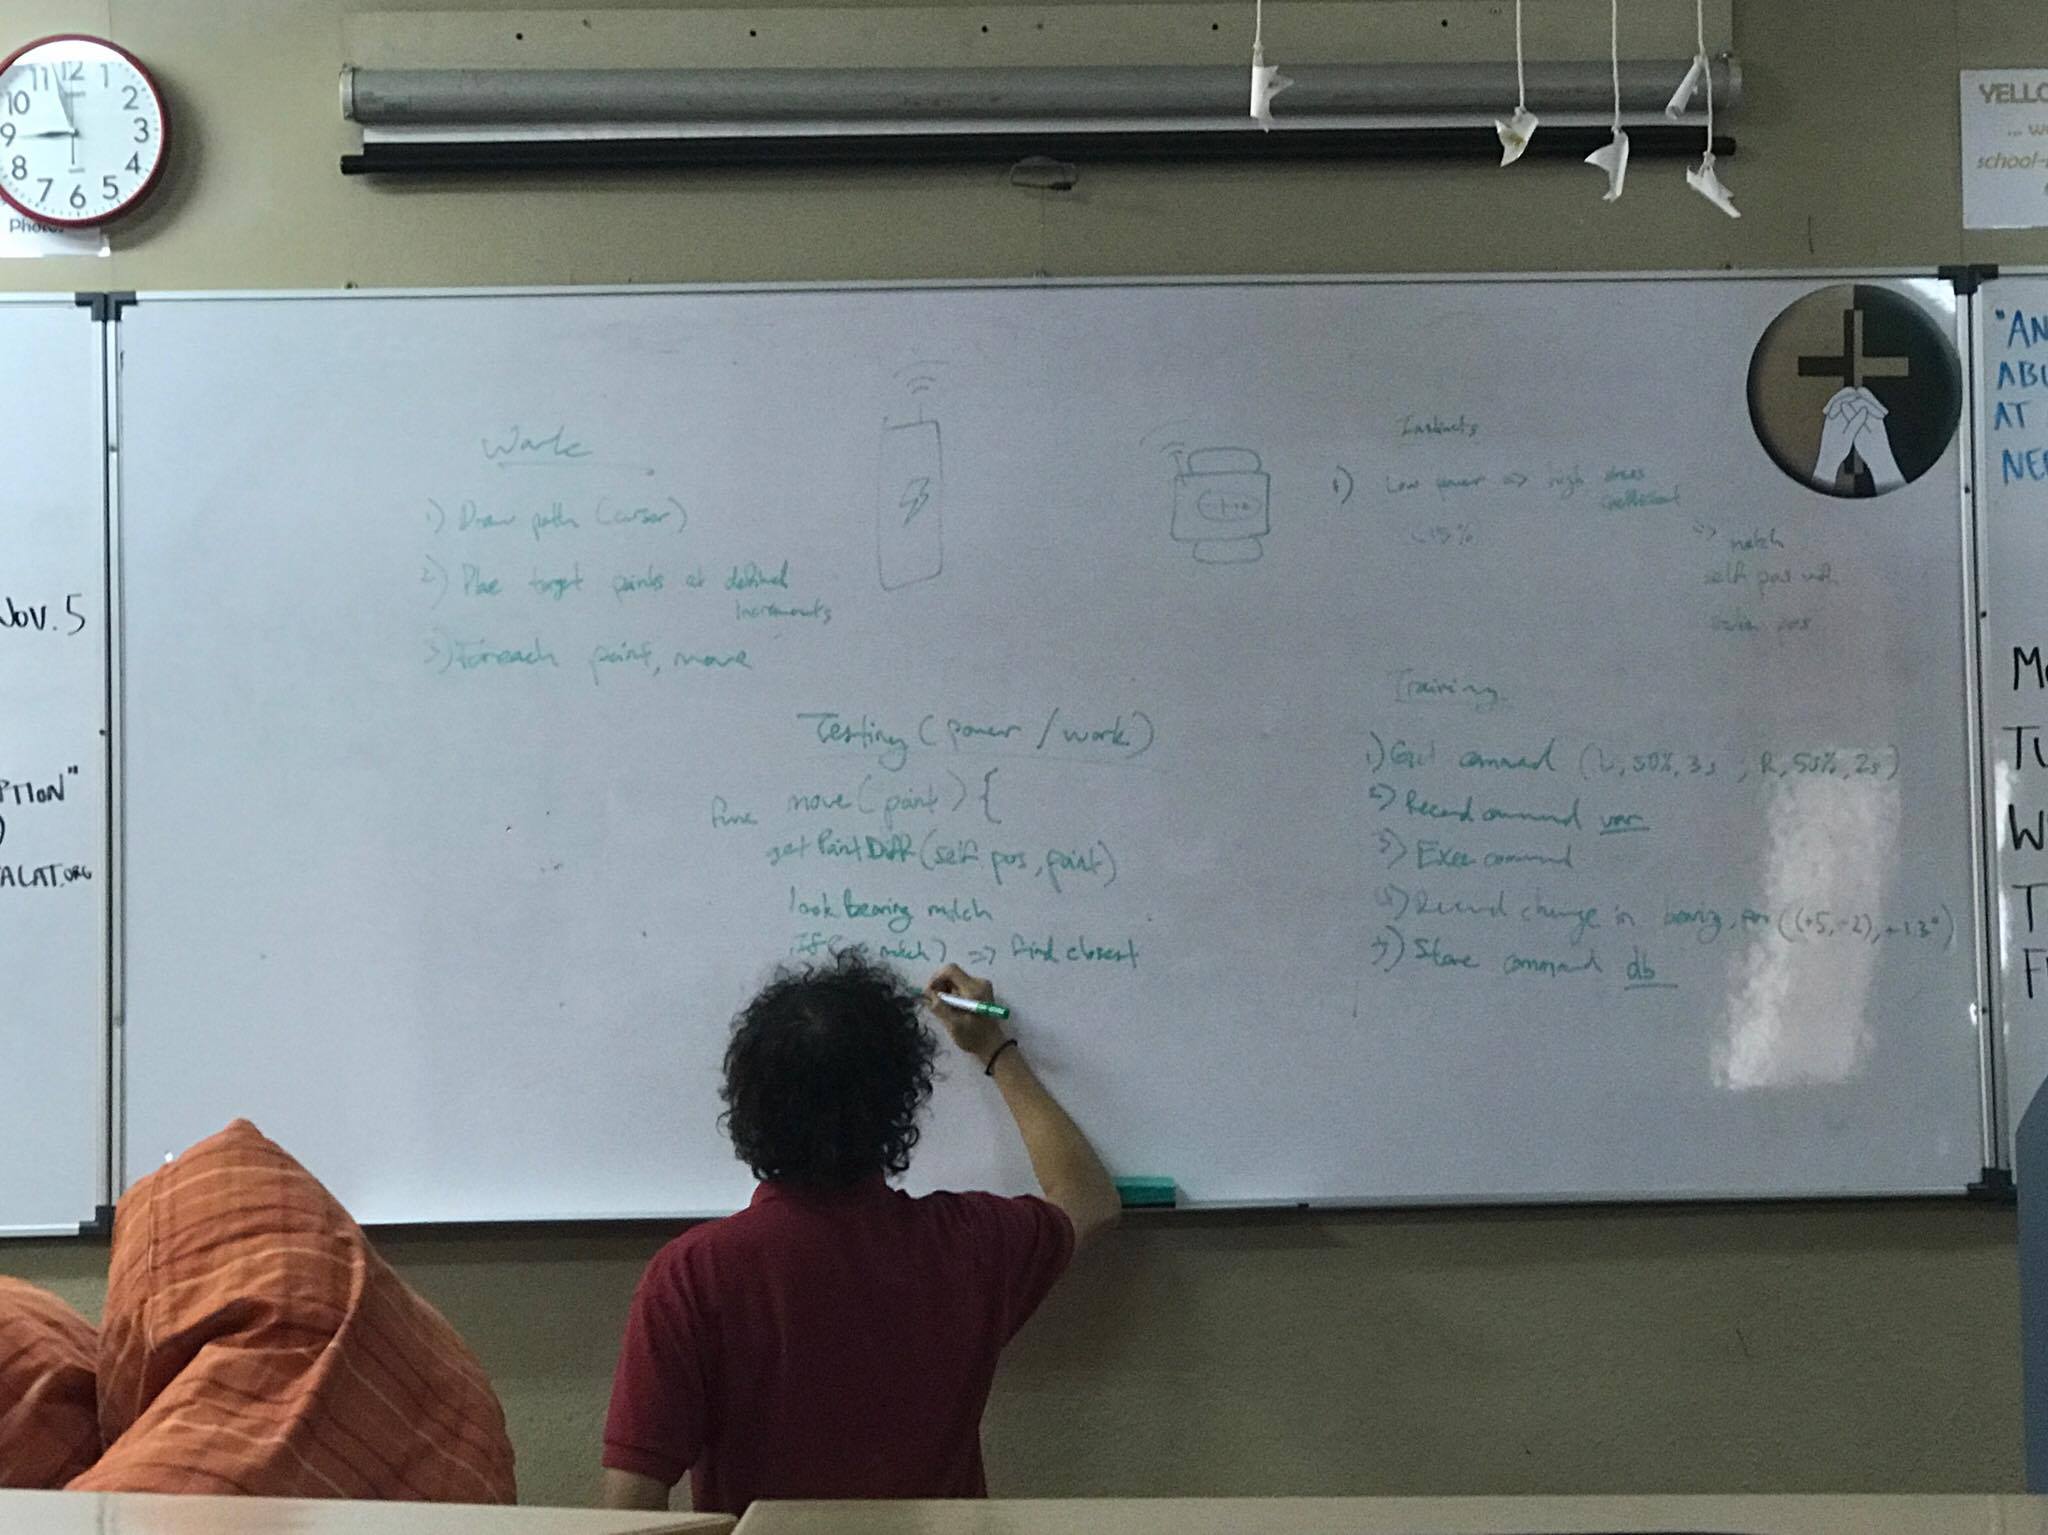 11 12 1
10 2
9 3
8 4
7 6 5
Photos
YELLO
... w
school-
Nov. 5
PTION"
ACAT.ORG
Work
1) Draw path (cursor)
2) Place target points at defined
increments
3) Foreach point, move
Instincts
1) Low power => high stress
coefficient
<15%
=> match
self pos with
pos
Testing (power / work)
func move (point) {
get Point Diff (self pos, point)
look bearing match
if ( match) => find closest
Training
1) Get command (L, 50%, 3s ; R, 55%, 2s)
2) Record command var
3) Exec command
4) Record change in bearing, pos ((+5, -2), +13°)
5) Store command db
"AN
ABU
AT
NEE
M
TU
W
T
F